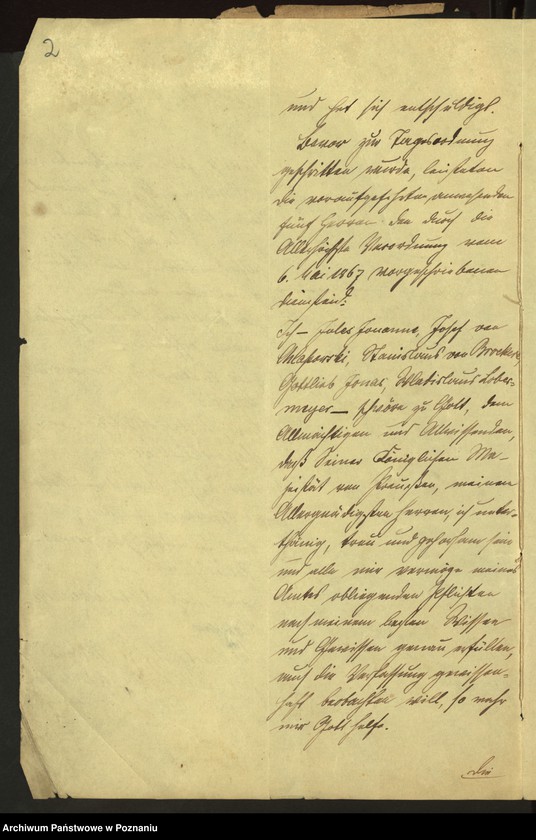 2
und hat sich entschuldigt.
Bevor zur Tagesordnung
geschritten wurde, leisteten
die voraufgeführten anwesenden
fünf Herren den durch die
Allerhöchste Verordnung vom
6. Mai 1867 vorgeschriebenen
Diensteid:
Ich — Jonanne, Josef von
Chlapowski, Stanislaus von
Gottlieb Jonas, Wladislaus Lober-
meyer — schwöre zu Gott, dem
Allmächtigen und Allwissenden,
daß Seiner Königlichen Ma-
jestät von Preußen, meinem
Allergnädigsten Herren, ich unter-
thänig, treu und gehorsam sein
und alle mir vermöge meines
Amtes obliegenden Pflichten
nach meinem besten Wissen
und Gewissen genau erfüllen,
auch die Verfassung gewissen-
haft beobachten will, so wahr
mir Gott helfe.
Die
Archiwum Państwowe w Poznaniu